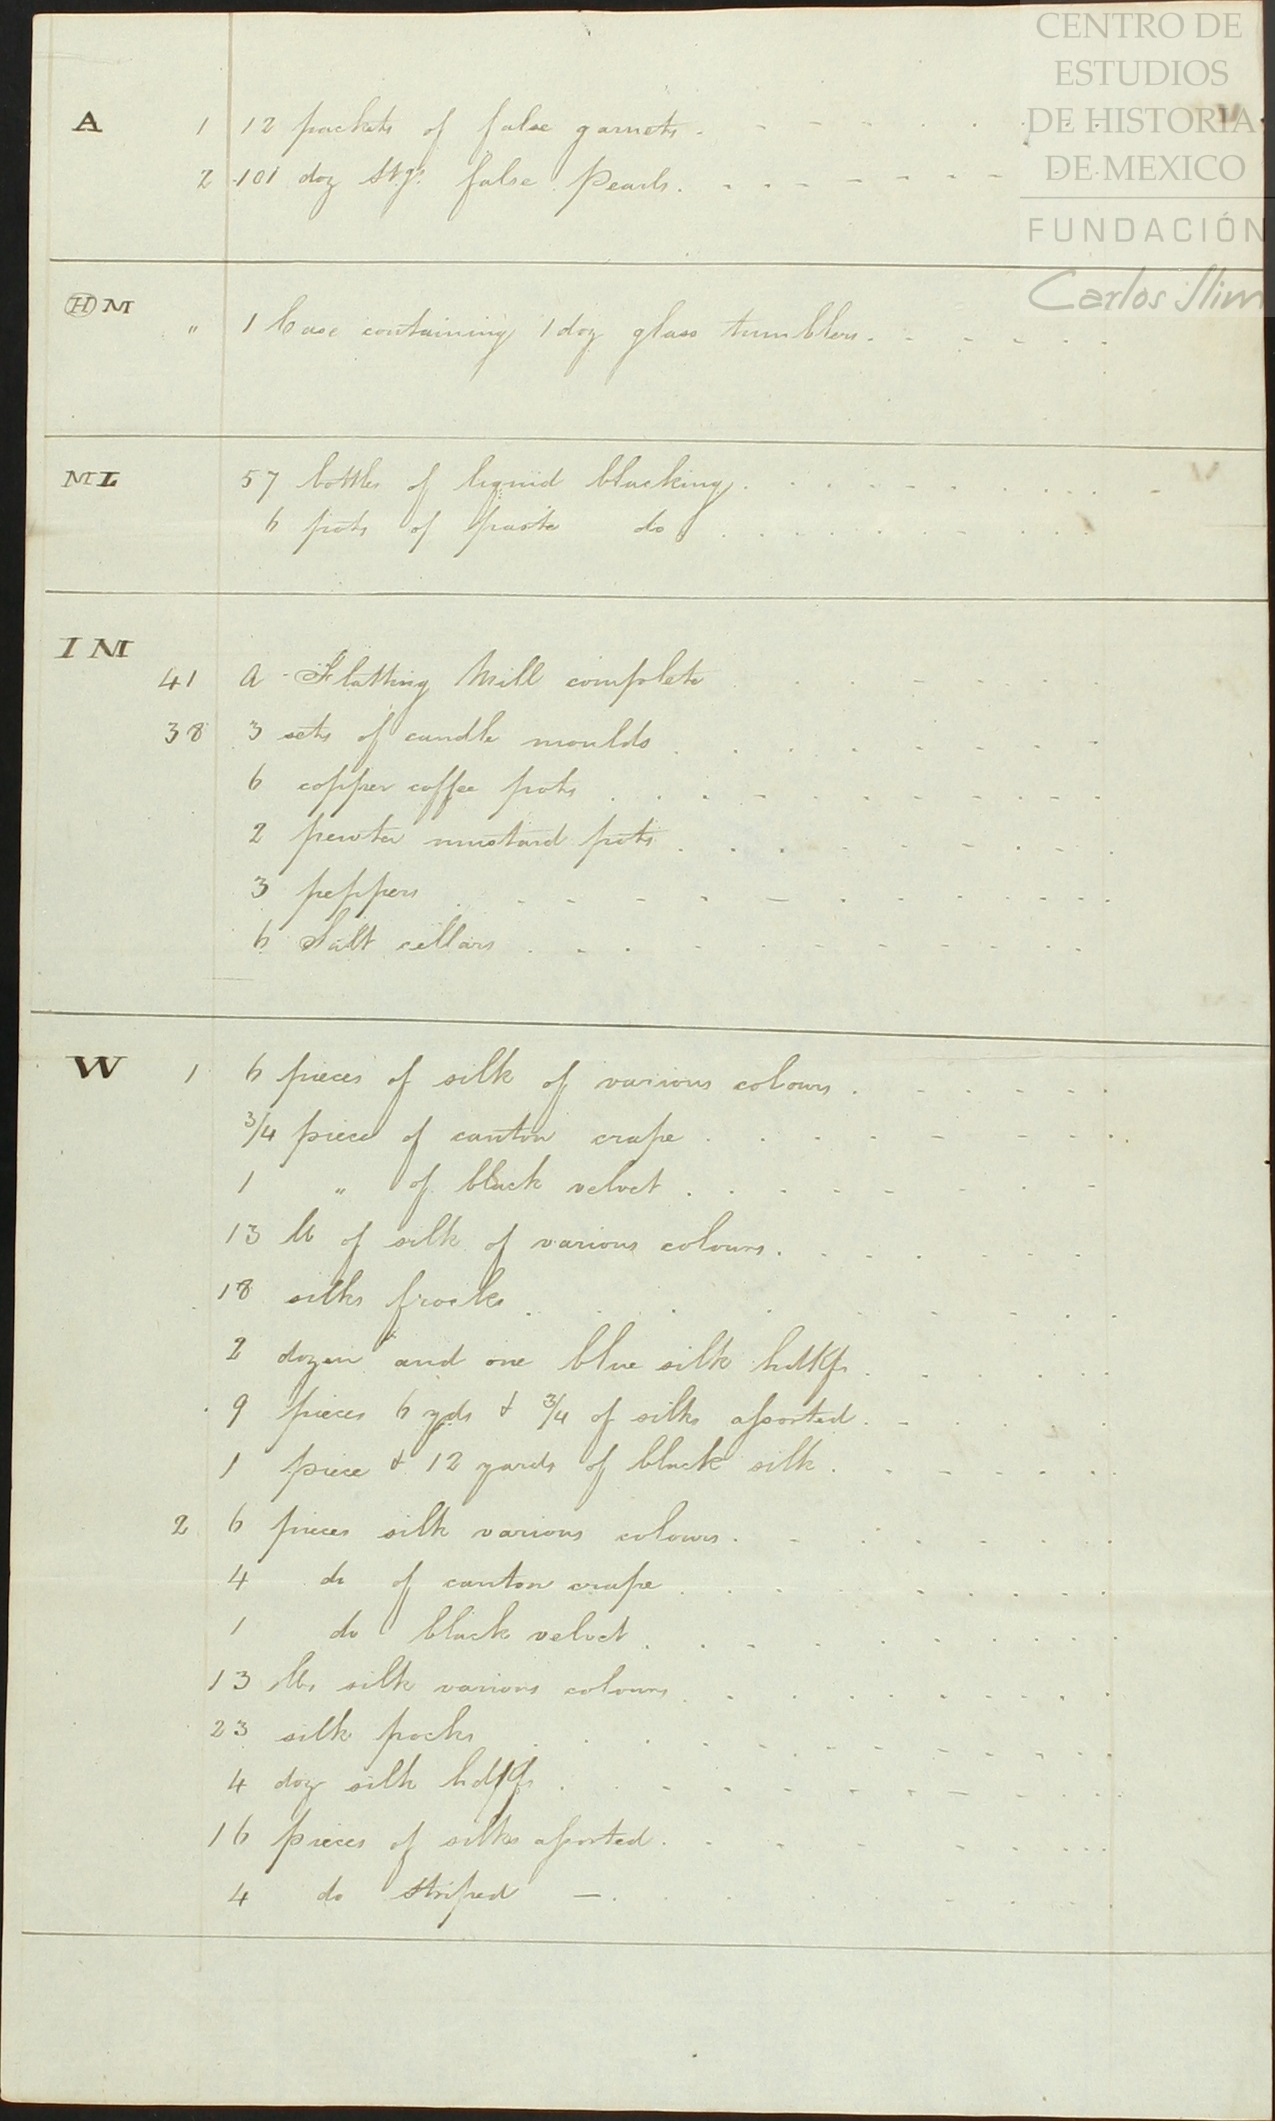 CENTRO DE
ESTUDIOS
DE HISTORIA
DE MEXICO
FUNDACIÓN
Carlos Slim
A 1 12 packets of false garnets
2 101 doz Stgs. false Pearls
(H) M
" 1 Case containing 1 doz glass tumblers
ML 57 bottles of liquid blacking
6 pots of paste do
I M
41 A Flatting Mill complete
38 3 sets of candle moulds
6 copper coffee pots
2 pewter mustard pots
3 peppers
6 Salt cellars
W 1 6 pieces of silk of various colours
3/4 piece of canton crape
1 " of black velvet
13 lb of silk of various colours
18 silks frocks
2 dozen and one blue silk hdkfs
9 pieces 6 yds & 3/4 of silks assorted
1 piece & 12 yards of black silk
2 6 pieces silk various colours
4 do of canton crape
1 do black velvet
13 lbs silk various colours
23 silk frocks
4 doz silk hdkfs
16 pieces of silks assorted
4 do striped —